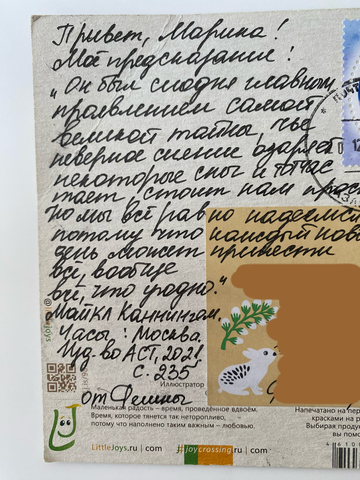 Привет, Марина!
Моё предсказание:
"Он был сегодня главным
проявлением самой
великой тайны, чьё
неверное сияние озаряет
некоторые сны и тотчас
тает, стоит нам прос
но мы всё равно надеемся
потому что каждый нов
день может принести
всё, вообще
всё, что угодно."
Майкл Каннингем.
Часы: Москва.
Изд-во АСТ, 2021.
С. 235
от Фелины
Иллюстратор
Маленькая радость – время, проведённое вдвоём.
Время, которое тянется так неторопливо,
потому что наполнено таким важным – любовью.
Напечатано на пер
красками на
Выбирая проду
вы помо
LittleJoys.ru | com
#joycrossing.ru | com